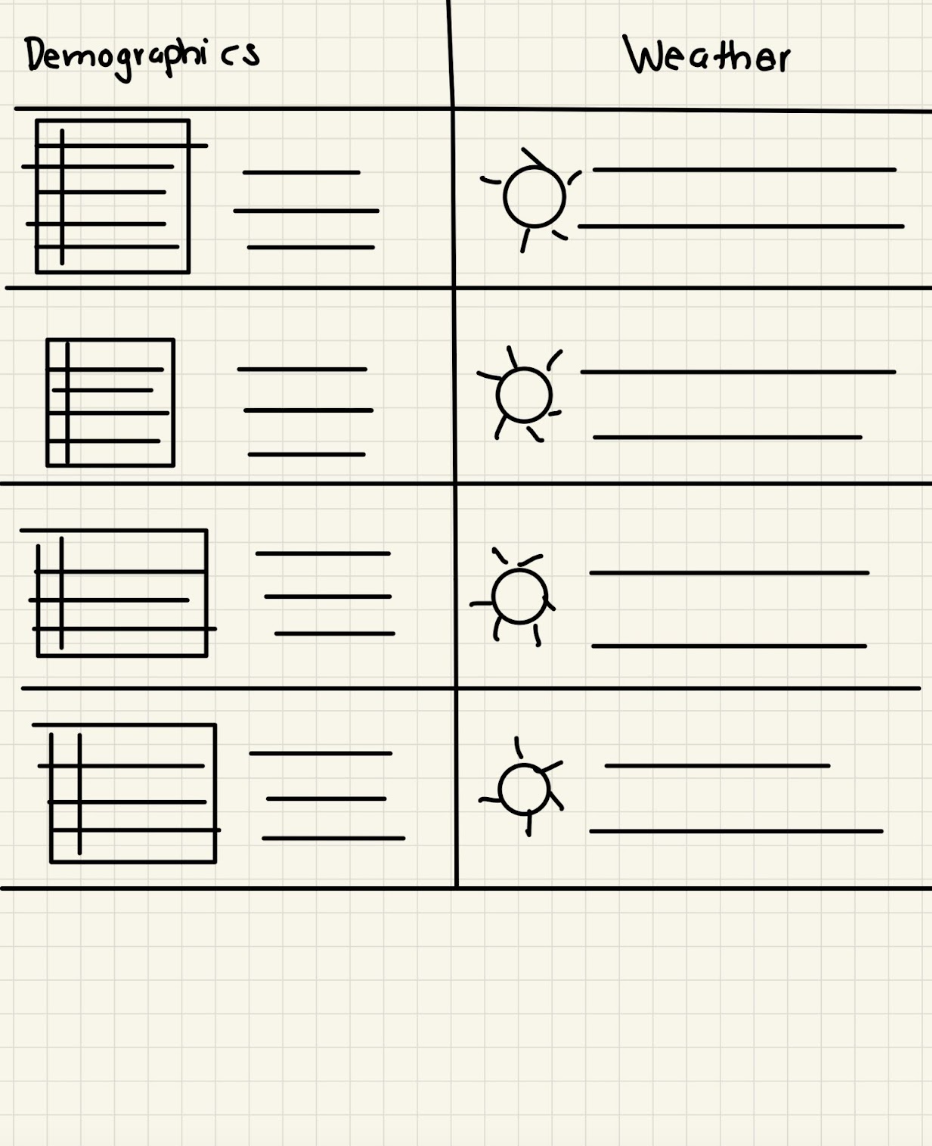 Demographics
Weather